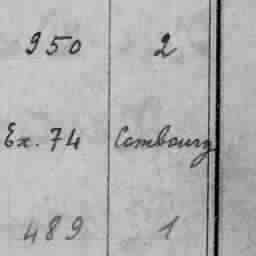 950 2
Ex. 74 Combourg
489 1